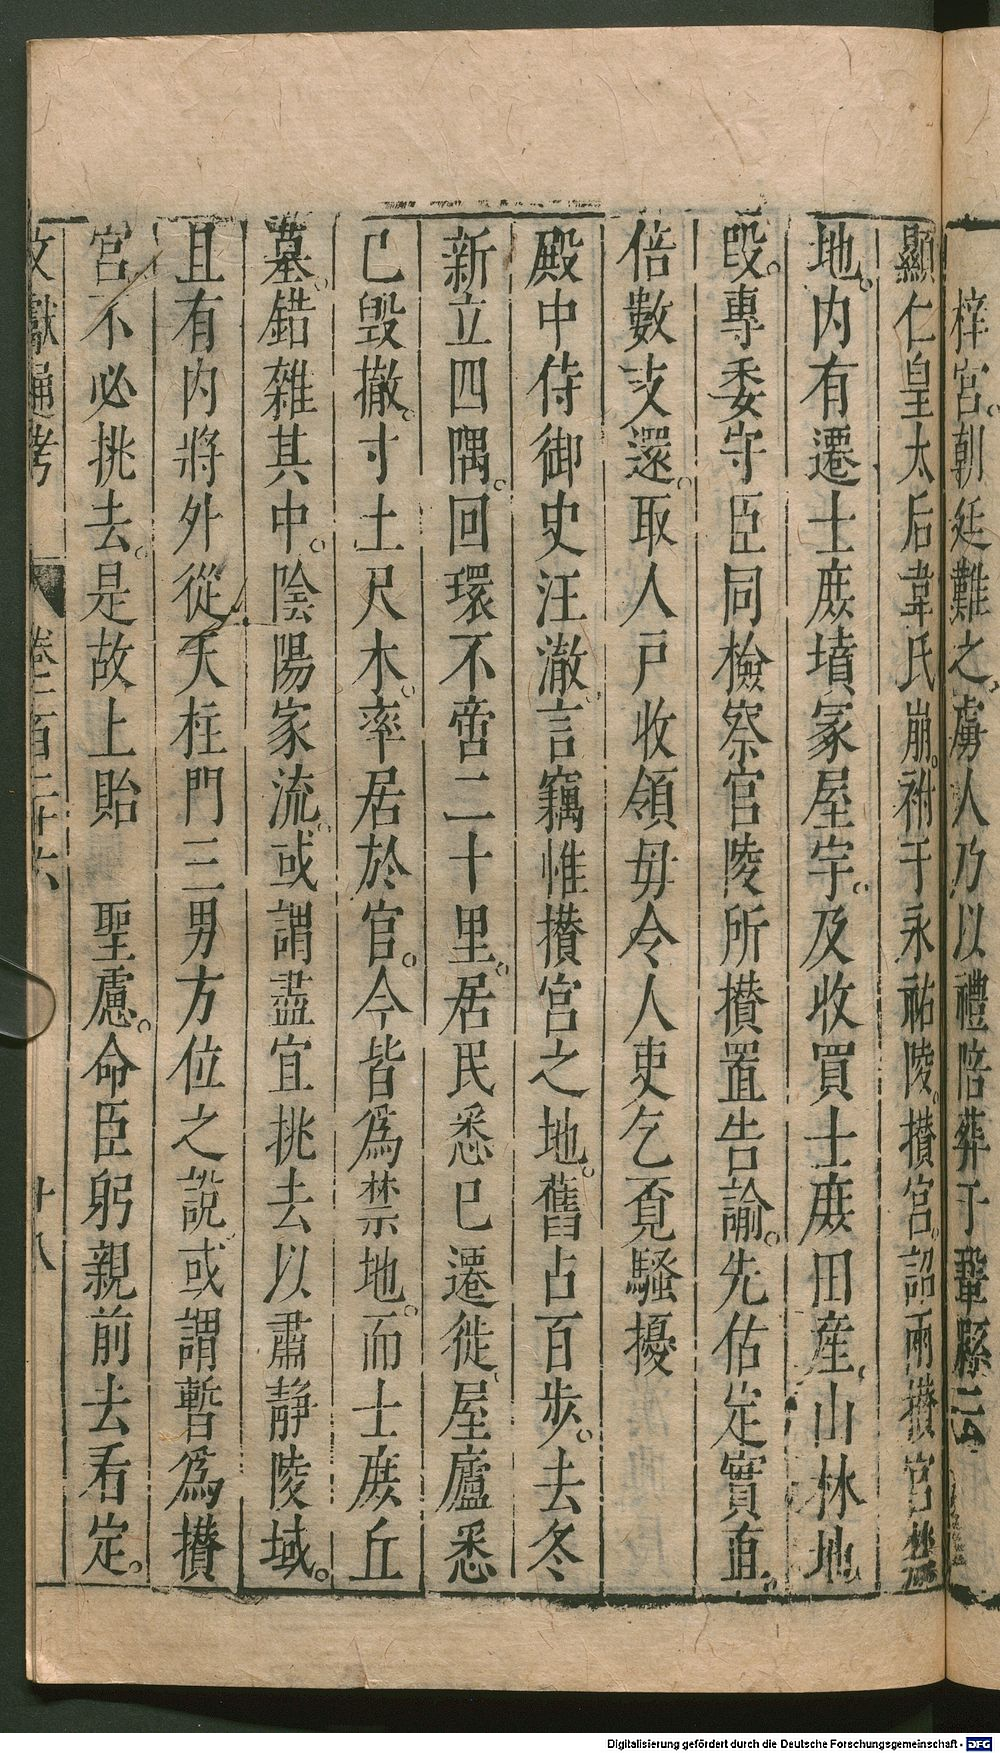 梓宮。朝廷難之。虜人乃以禮陪葬于鞏縣云
顯仁皇太后韋氏崩。祔于永祐陵。攅宮。詔兩攅宮禁
地。内有遷士庶墳冢屋宇。及收買士庶田産、山林地
段。專委守臣同檢察官陵所攅置告諭。先估定實直。
倍數支還。取人戶收領毋令人吏乞覔騷擾
殿中侍御史汪澈。言竊惟攅宮之地。舊占百步。去冬
新立四隅。回環不啻二十里。居民悉已遷徙。屋廬悉
已毁撤。寸土尺木。率居於官。今皆爲禁地。而士庶丘
墓。錯雜其中。陰陽家流。或謂盡宜挑去以肅靜陵域。
且有内將外從天柱門三男方位之説。或謂暫爲攅
宮不必挑去。是故上貽　聖慮。命臣躬親前去看定。
文獻通考　卷一百二十六　十八
Digitalisierung gefördert durch die Deutsche Forschungsgemeinschaft - DFG